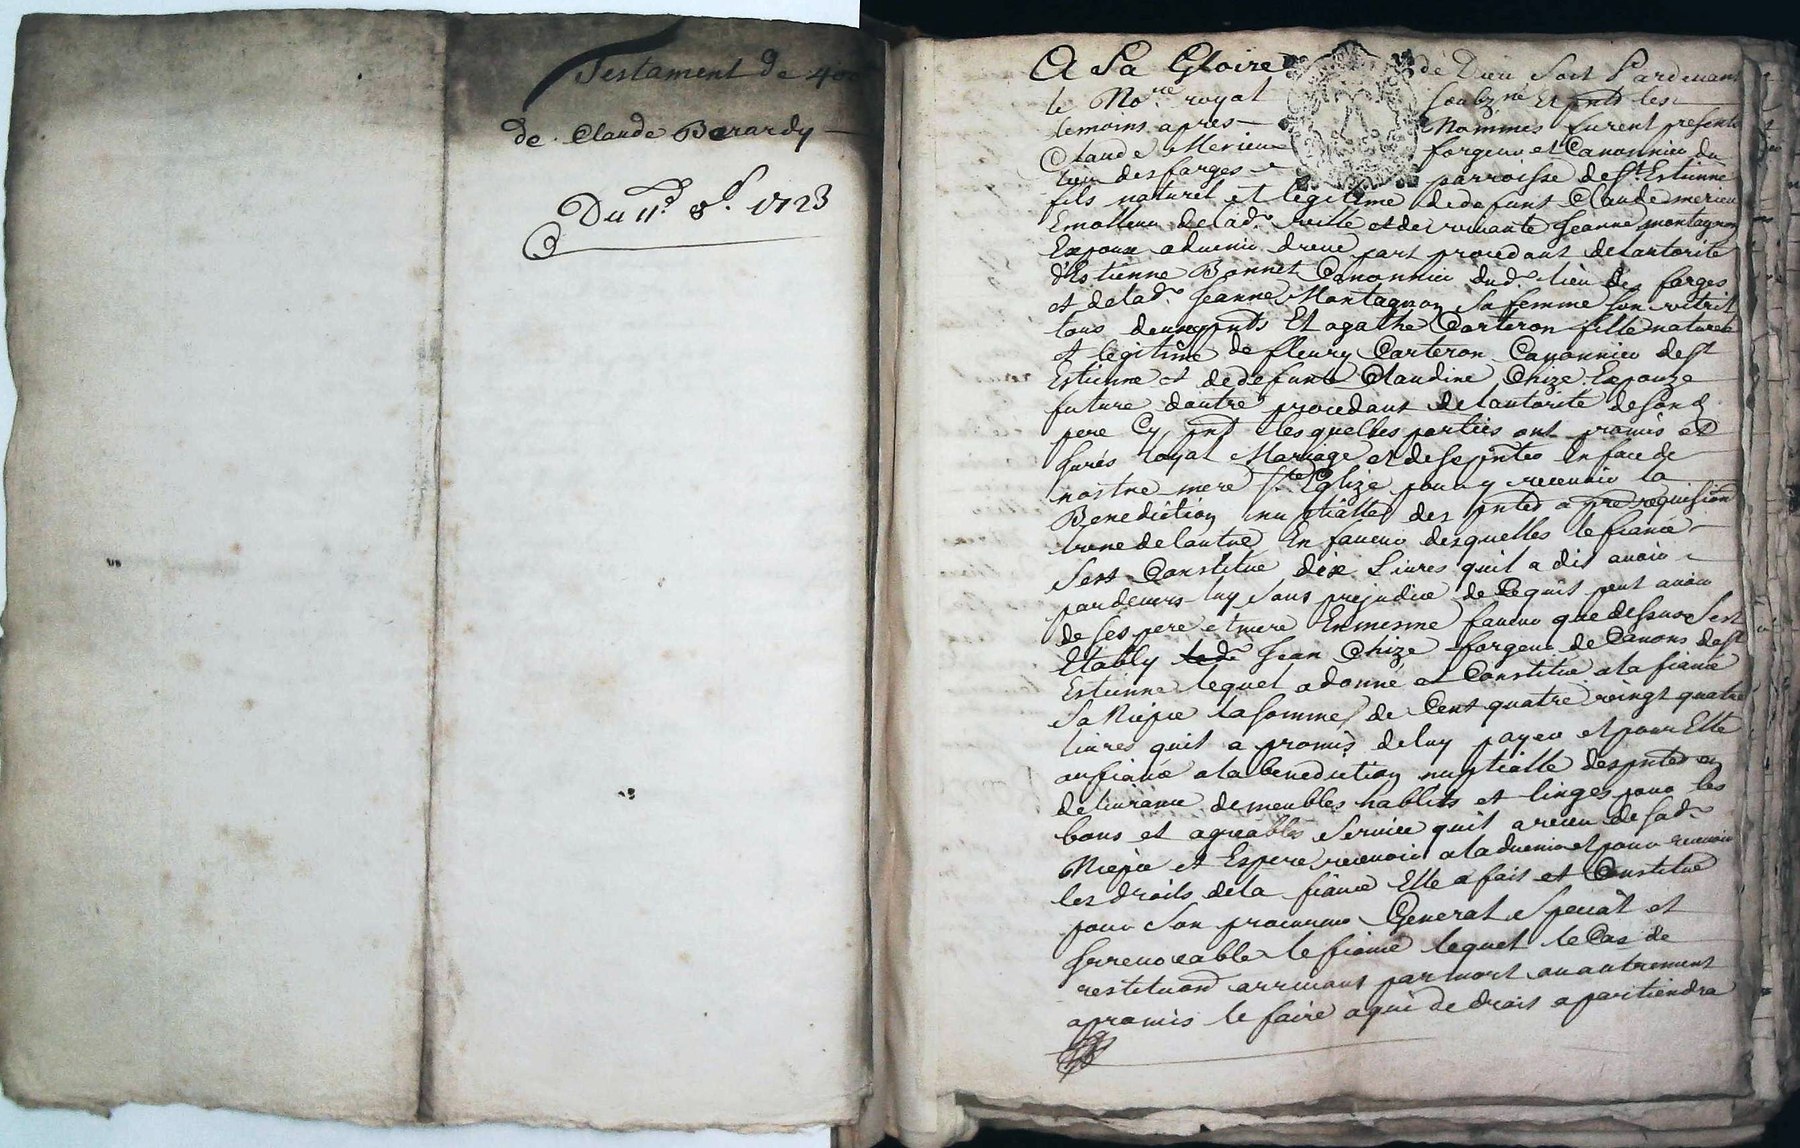 Testament de
de Claude Berardy
Du 11e 8e 1723
A La Gloire de Dieu soit Pardevant
le Nore royal soubzne Et pnts les
temoins apres Nommes furent presents
Claude Merieu forgeur et Canonnier du
lieu des forges parroisse de St Estienne
fils naturel et legitime de defunt Claude merieu
Emolleur de lad. ville et de vivante Jeanne montagnon
Expoux advenir d'une part procedant de lautorite
d'Estienne Bonnet Canonnier dud. lieu des forges
et de lad. Jeanne Montagnon sa femme son
tous deux pnts Et agathe Carteron fille naturelle
et legitime de fleury Carteron Canonnier de St
Estienne et de defunte Claudine Chize Expouze
future d'autre procedant de lautorite de son d.
pere Cy pnt lesquelles parties ont promis et
Jurés loyal Mariage et de se pnter En face de
nostre mere Ste Eglize pour y recevoir la
Benediction nuptialle des pntes a pre requisition
lune de lautre En faveur desquelles le fiancé
sest Constitué dix Livres quil a dit avoir
pardevers luy sans prejudice de Ce quil peut avoir
de ses pere et mere En mesme faveur que dessus sest
Etably Jean Chize forgeur de Canons de St
Estienne lequel a donné et Constitué a la fiancé
Sa Niepce la somme de Cent quatre vingt quatre
livres quil a promis de luy payer et pour Elle
au fiancé a la benediction nuptialle des pntes en
delivrance de meubles habits et linges pour les
bons et agreables service quil a receu de sad.
Niepce et Espere recevoir a ladvenir et pour recevoir
les droits de la fiancé Elle a fait et Constitué
pour Son procureur General Special et
Irrevocable le fiancé lequel le Cas de
restituon arrivant par mort ou autrement
a promis le faire a qui de droit apartiendra